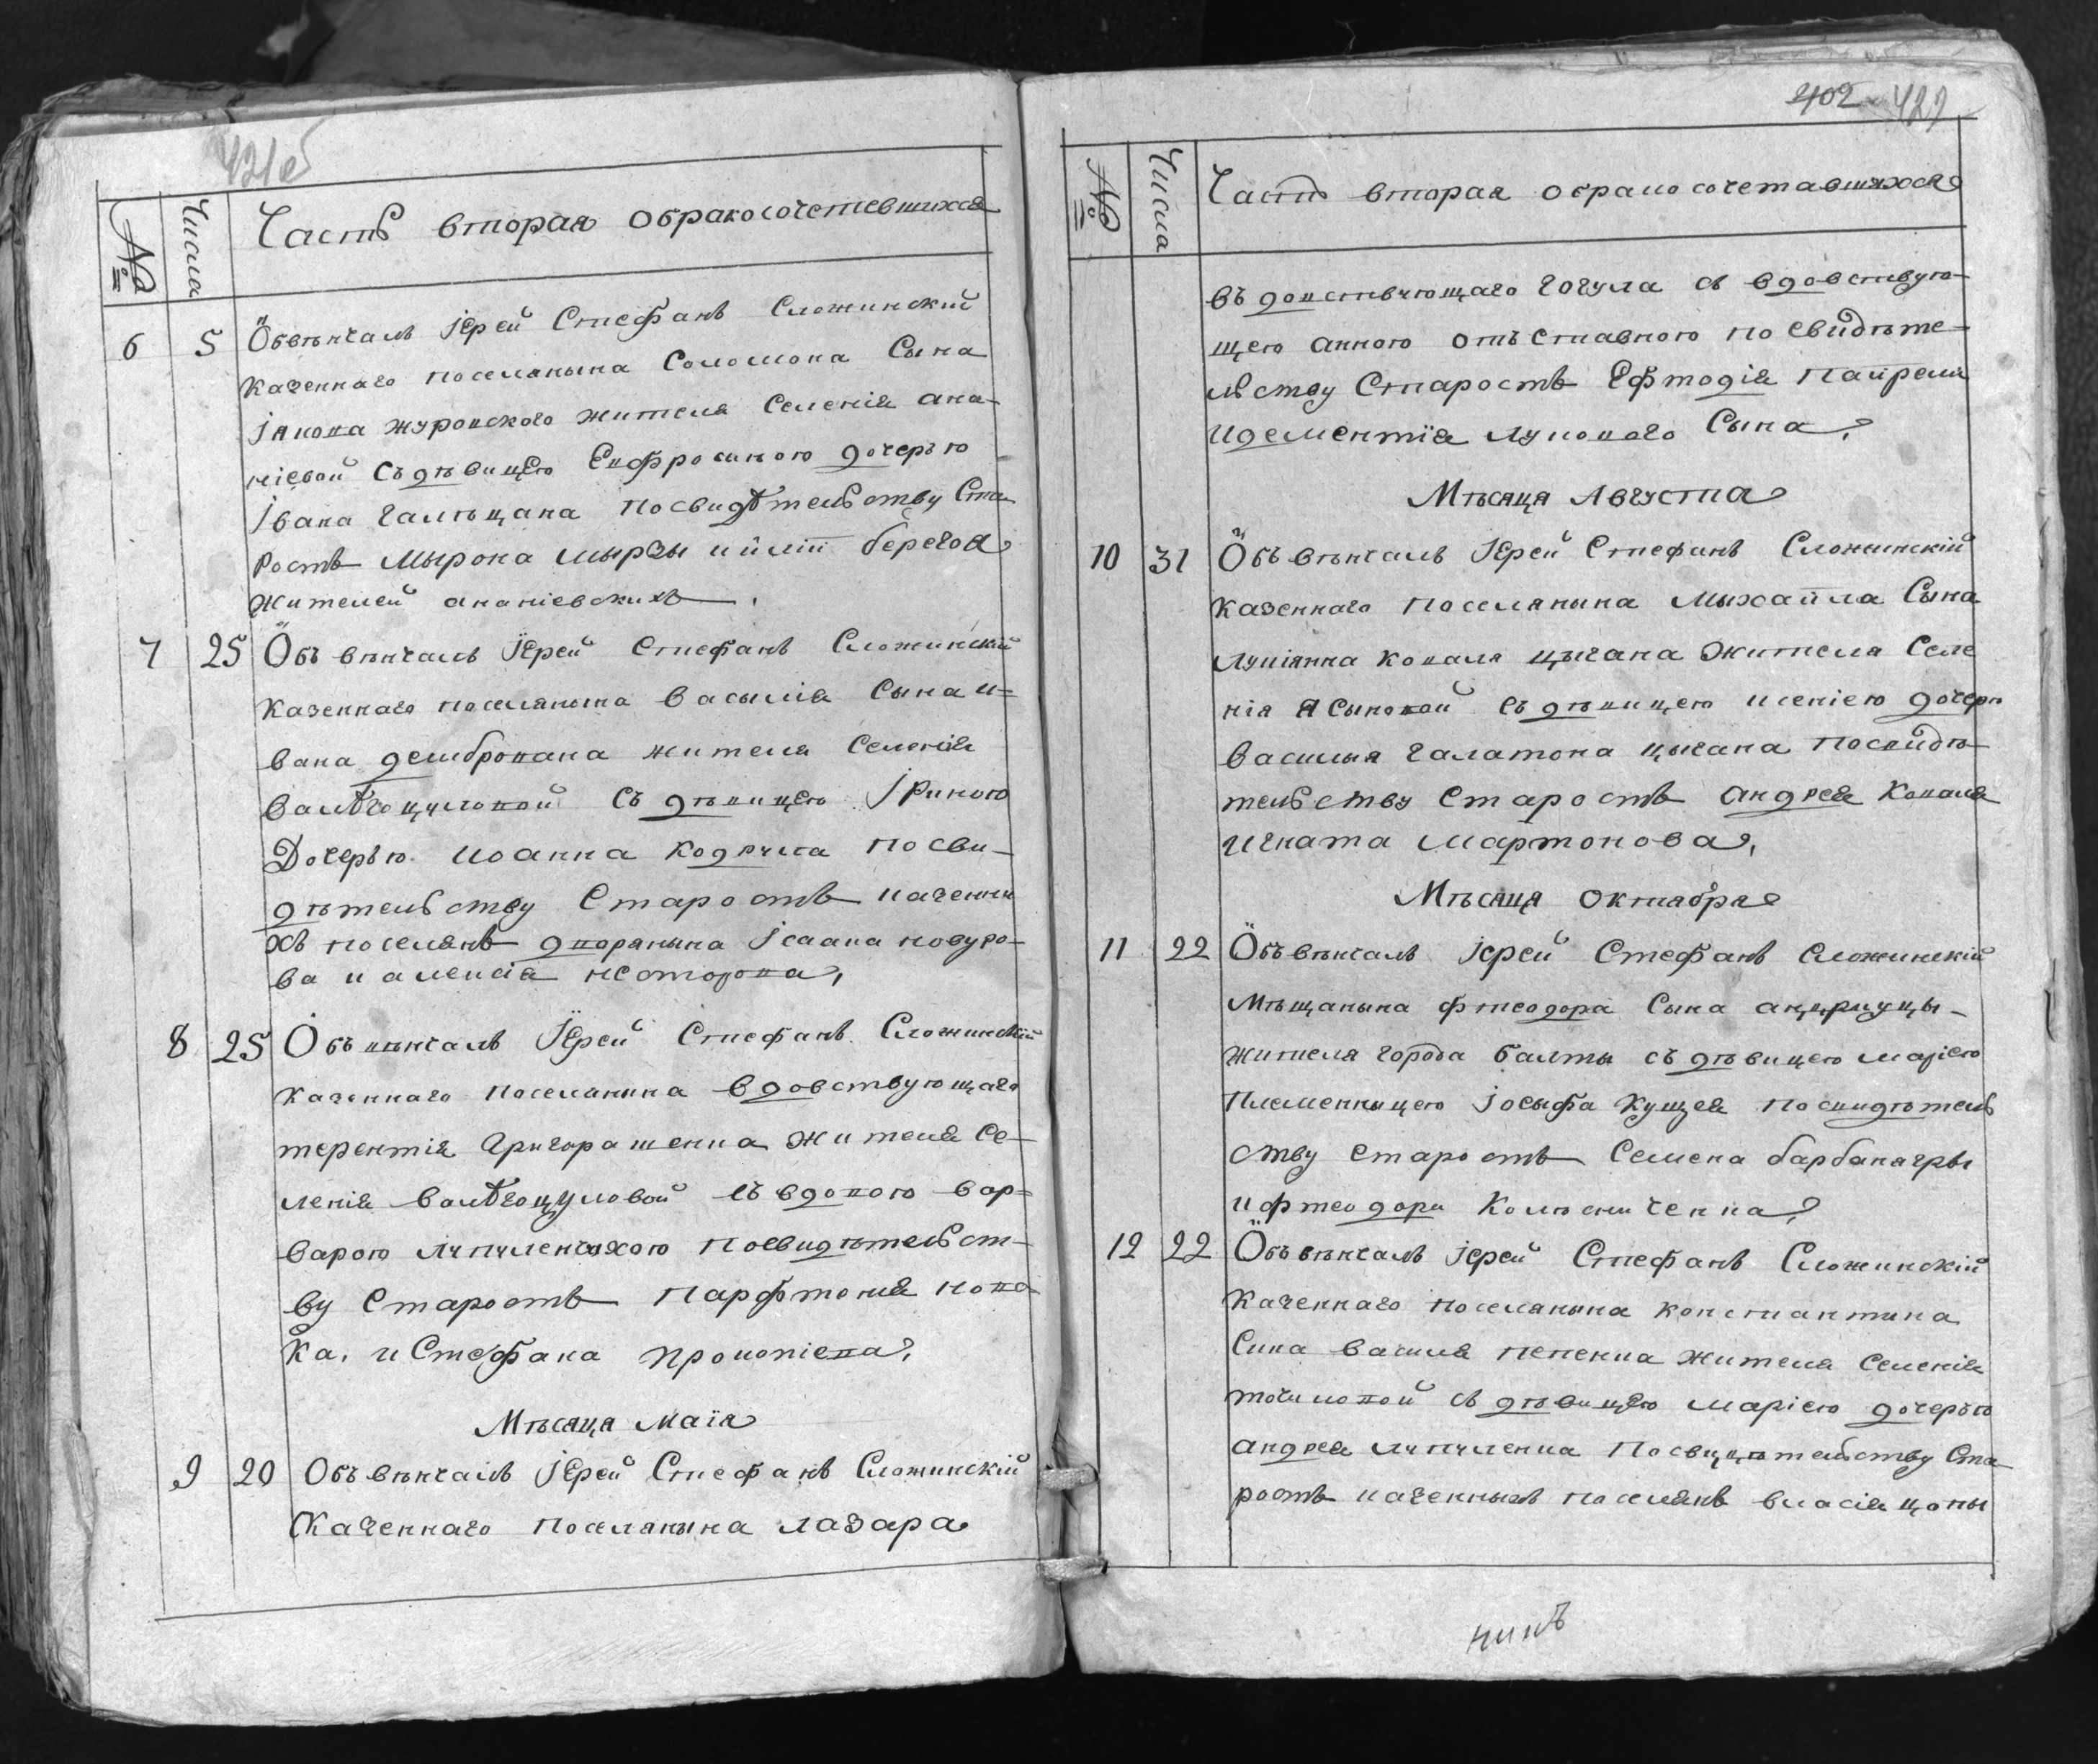 421об
№ Числа Часть вторая обракосочетевшихся
6 5 Обвѣнчалъ Іерей Стефанъ Сложинский
казеннаго поселянына Соломона Сына
Іякова журовского жителя Селенія ана-
ніевой съ дѣвицею Евфросиною дочерью
Івана галѣцана по свидѣтельству Ста
ростъ Мырона мырзы и берегоя
жителей ананіевскихъ.
7 25 Объвѣнчалъ Іерей Стефанъ Сложинскій
казеннаго поселянына василія Сына и=
вана дембрована жителя Селенія
валѣгоцуловой съ дѣвицею Іриною
Дочерью иоанна по сви-
дѣтельству Старостъ казенны
хъ поселянъ дворянына Ісаака
ва и алексія несторова,
8 25 Объвѣнчалъ Іерей Стефанъ Сложинскій
казеннаго поселянина вдовствующаго
терентія Григорашенка жителя Се-
ленія валѣгоцуловой съ вдовою вар=
варою Лупуленчихою по свидѣтельст-
ву Старостъ Парфтенія нова
ка. и Стефана Прокопіева,
Мѣсяца Маія
9 20 Объвѣнчалъ Іерей Стефанъ Сложинскій
Казеннаго поселянына лазара
402 422
№ Числа Часть вторая обракосочетавшихся
въдовствующаго гогула съ вдовствую-
щею анною отъставного по свидѣте-
льству Старостъ Ефтодія
идементія луповаго Сына,
Мѣсяца Августа
10 31 Объвѣнчалъ Іерей Стефанъ Сложинскій
казеннаго поселянына Мыхайла Сына
Лукіянна коваля цыгана жителя Селе
нія Ясыновой съ дѣвицею ксеніею дочерю
василыя галатона цыгана по свидѣ
тельству Старостъ андрея коваля
игната мартонова,
Мѣсяца октября
11 22 Объвѣнчалъ Іерей Стефанъ Сложинскій
Мѣщанына фтеодора Сына андриуцы-
жителя города балты съ дѣвицею маріею
племенницею Іосыфа Кущея по свидѣтель
ству старостъ Семена
и фтеодора Колѣсниченка,
12 22 Объвѣнчалъ Іерей Стефанъ Сложинскій
казеннаго поселянына константина
Сина васыля пепенка жителя Селенія
точиловой съ дѣвицею маріею дочерью
андрея лупуленка по свидѣтельству Ста
ростъ казенныхъ поселянъ власія цопы